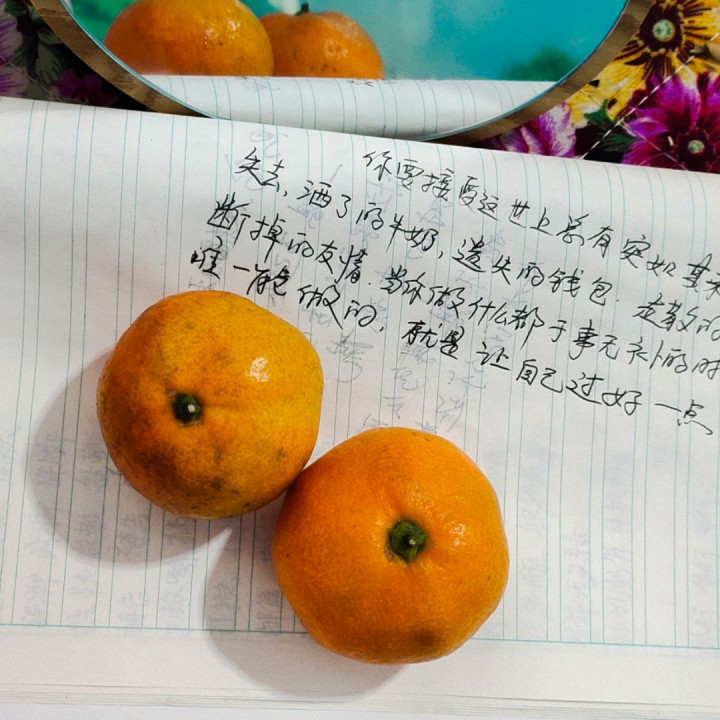 你要接受这世上总有突如其来
失去，洒了的牛奶，遗失的钱包.走散的
断掉的友情.当你做什么都于事无补的时
唯一能做的，就是让自己过好一点